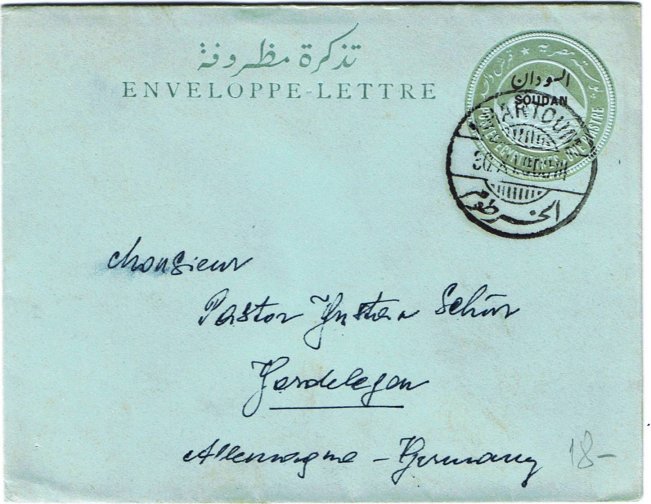 تذكرة مظروفة
ENVELOPPE-LETTRE
السودان
SOUDAN
KARTOUM
الخرطوم
Monsieur
Pastor Gustav Schür
Gardelegen
Allemagne - Germany
18-